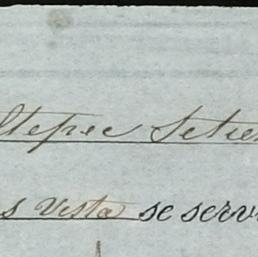 ltepec Setie
s Vista se serv